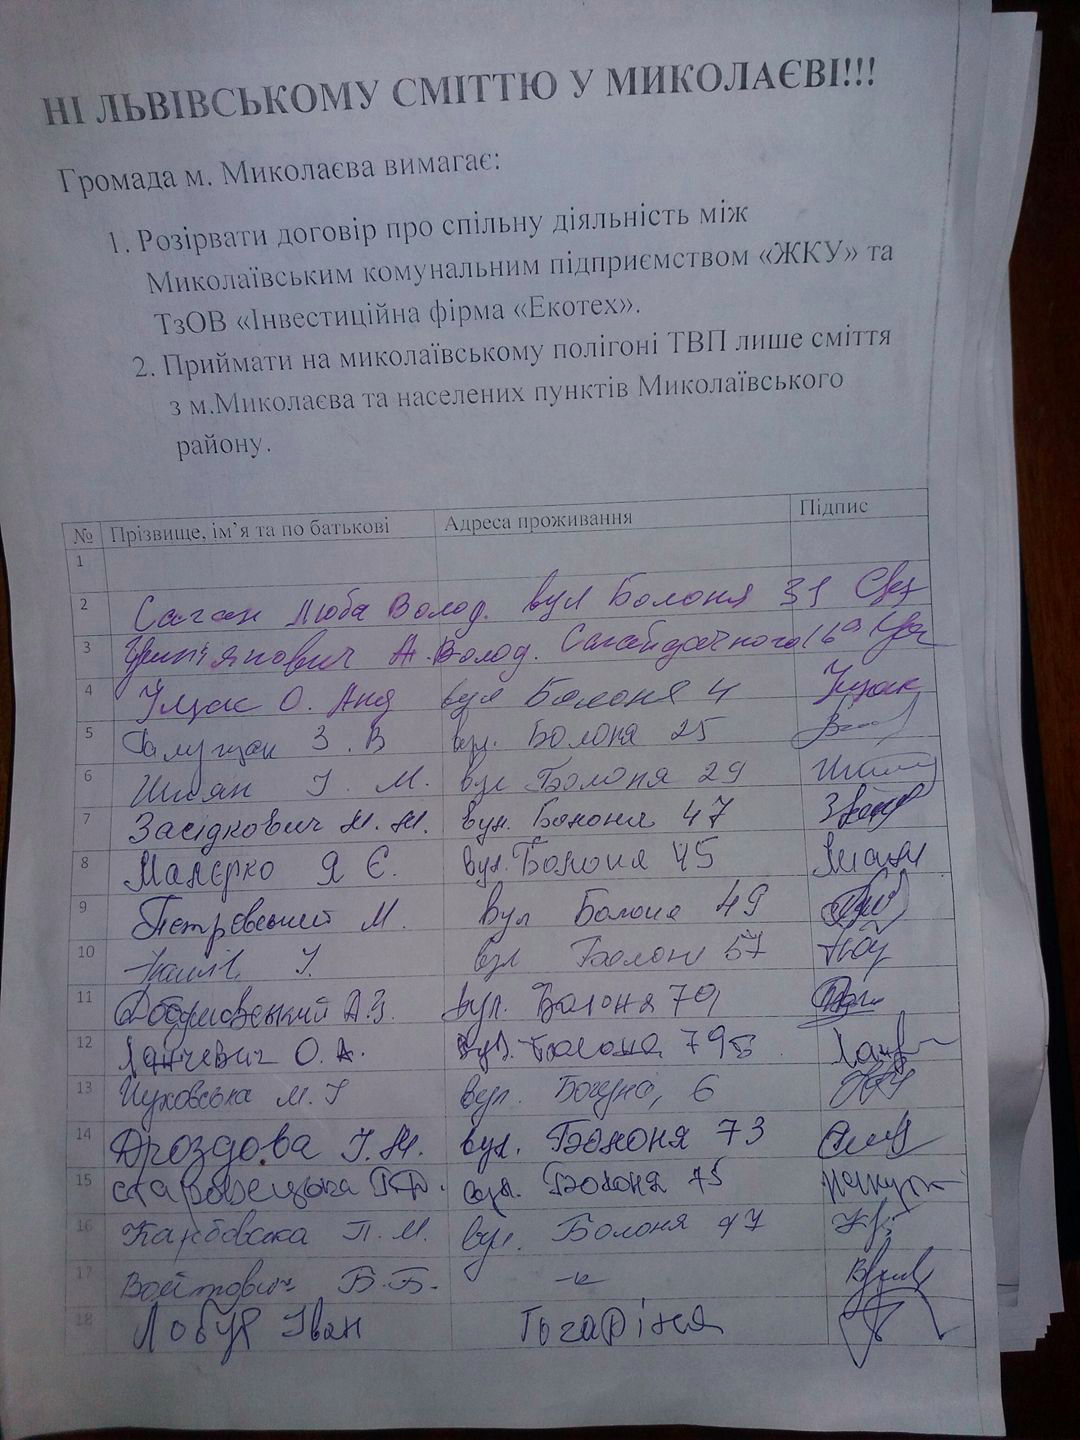 НІ ЛЬВІВСЬКОМУ СМІТТЮ У МИКОЛАЄВІ!!!
Громада м. Миколаєва вимагає:
1. Розірвати договір про спільну діяльність між
Миколаївським комунальним підприємством «ЖКУ» та
ТзОВ «Інвестиційна фірма «Екотех».
2. Приймати на миколаївському полігоні ТВП лише сміття
з м.Миколаєва та населених пунктів Миколаївського
району.
№ Прізвище, ім’я та по батькові Адреса проживання Підпис
1
2 Саган Люба Волод. вул Болоня 31
3 А. Волод. Сагайдачного 16а
4 О. Анд вул Болоня 4
5 З. В вул. Болоня 25
6 Шиян І. М. вул Болоня 29
7 Засідкович М. М. вул. Болоня 47
8 Малєрко Я Є. вул. Болоня 45
9 Петровський М. вул Болоня 49
10 І. вул Болоня 57
11 А.З. вул. Болоня 79
12 Ланчевич О. А. вул. Болоня 79Б
13 М. І вул. Богуна, 6
14 Дроздова І. М. вул. Болоня 73
15 вул. Болоня 75
16 Карбовська П. М. вул. Болоня 47
17 Войтович Б. Б.
18 Лобур Іван Гогаріна